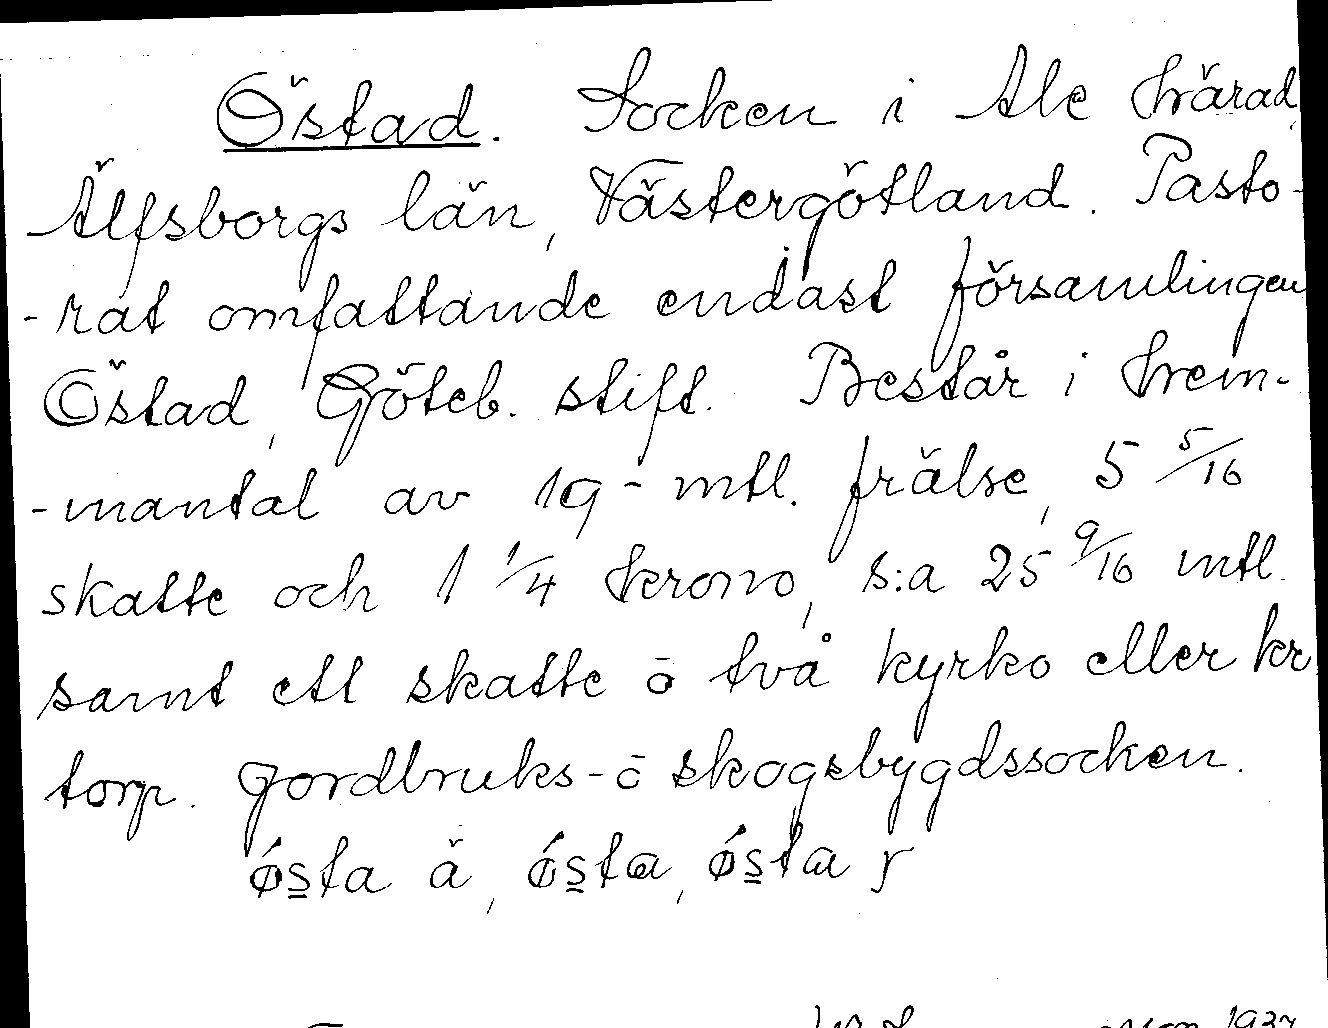 Östad. Socken i Ale härad,
Älfsborgs län, Västergötland. Pasto-
-rat omfattande endast församlingen
Östad, Göteb. stift. Består i hem-
-mantal av 19 - mtl. frälse, 5 5/16
skatte och 1 1/4 krono, s:a 25 9/16 mtl.
samt ett skatte o två kyrko eller kr
torp. Jordbruks- o skogsbygdssocken.
1937